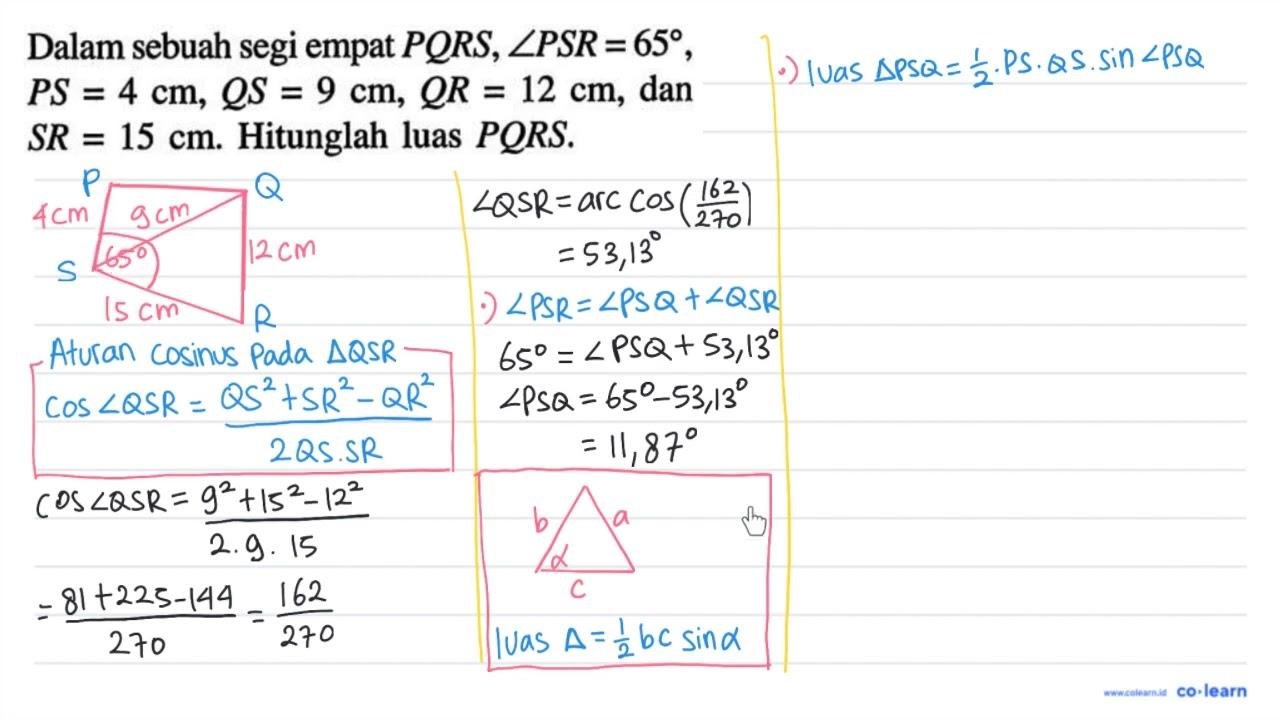 Dalam sebuah segi empat PQRS, ∠PSR = 65°,
PS = 4 cm, QS = 9 cm, QR = 12 cm, dan
SR = 15 cm. Hitunglah luas PQRS.
P
Q
4cm
9cm
65°
12cm
S
15cm
R
Aturan cosinus pada ΔQSR
cos∠QSR = QS²+SR²-QR²
2QS.SR
cos∠QSR = 9²+15²-12²
2.9.15
= 81+225-144 = 162
270 270
∠QSR = arc cos(162/270)
= 53,13°
•) ∠PSR = ∠PSQ + ∠QSR
65° = ∠PSQ + 53,13°
∠PSQ = 65°-53,13°
= 11,87°
b a
α
c
luas Δ = 1/2 bc sinα
•) luas ΔPSQ = 1/2 . PS . QS . sin ∠PSQ
www.colearn.id co·learn